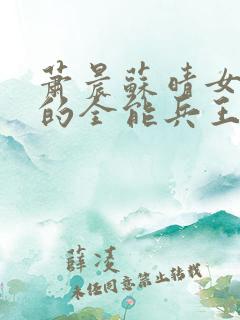 蕭晨蘇晴女
的全能兵王
薛凌
未經同意禁止轉載